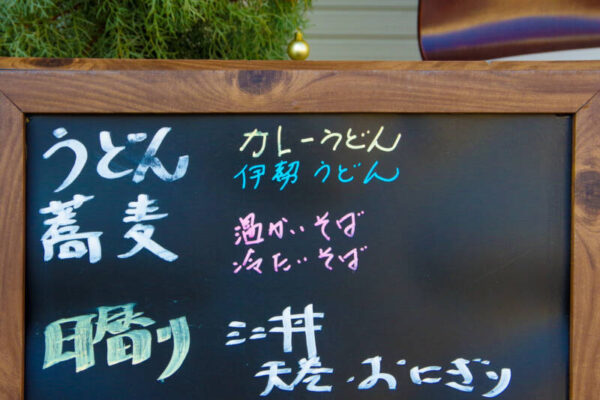 うどん
カレーうどん
伊勢うどん
蕎麦
温かいそば
冷たいそば
日替り
ミニ丼
天巻・おにぎり